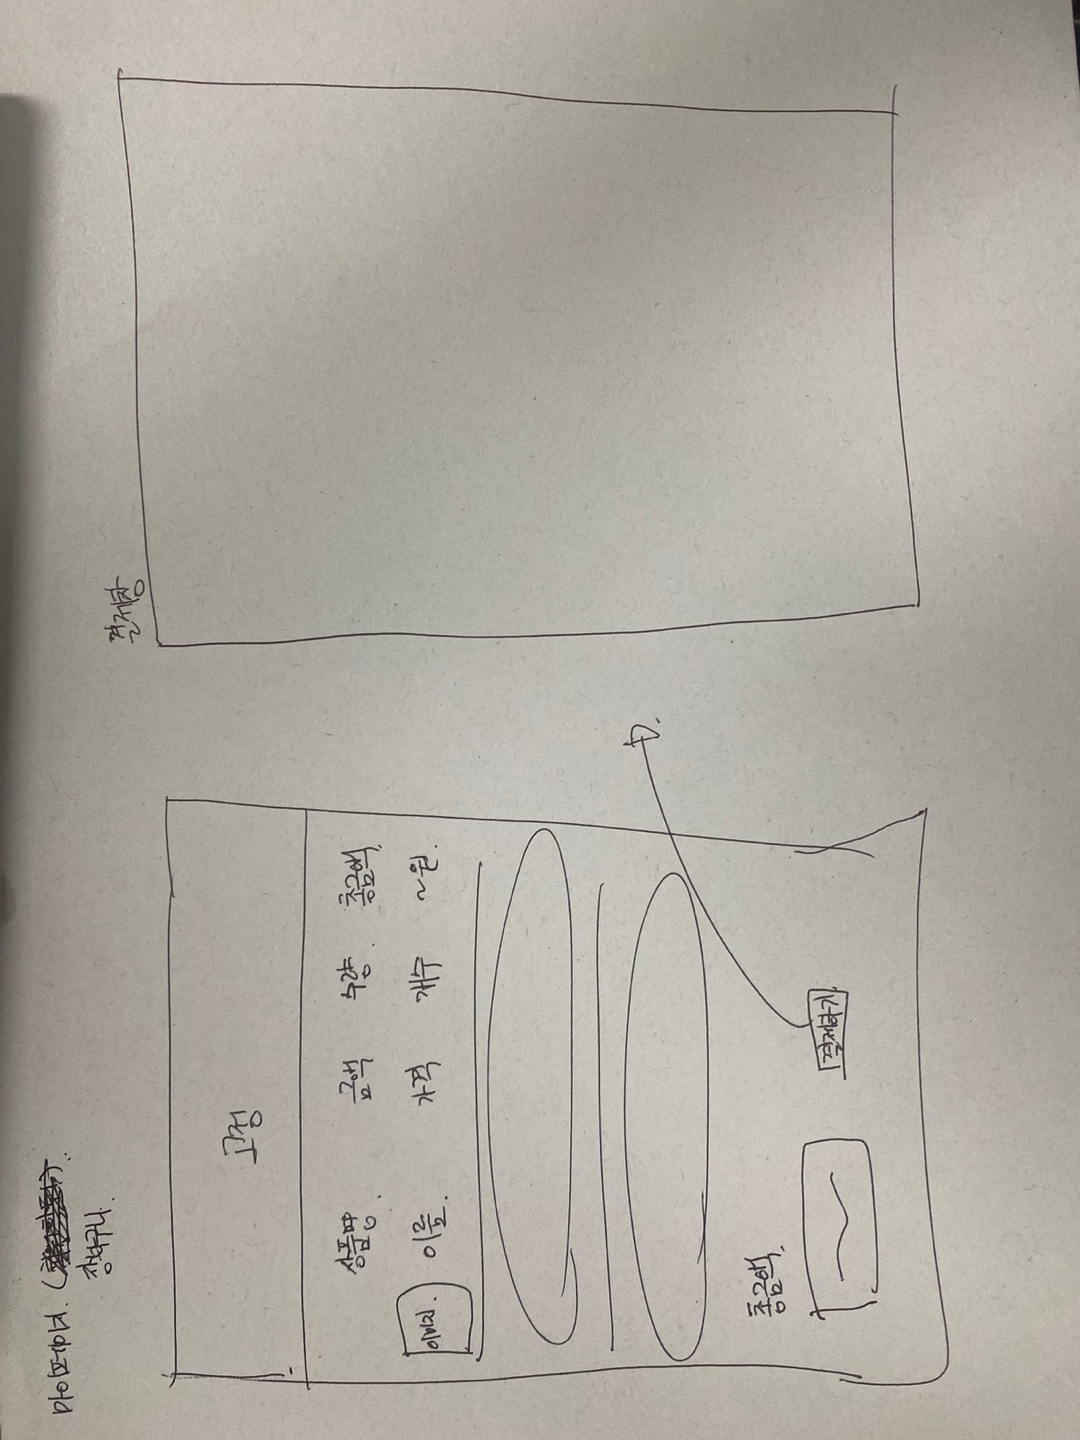 마이페이지. (
장바구니.
고정
상품명. 금액 수량. 총금액.
이미지. 이름. 가격 개수 ~원.
총금액.
결제하기
결제창